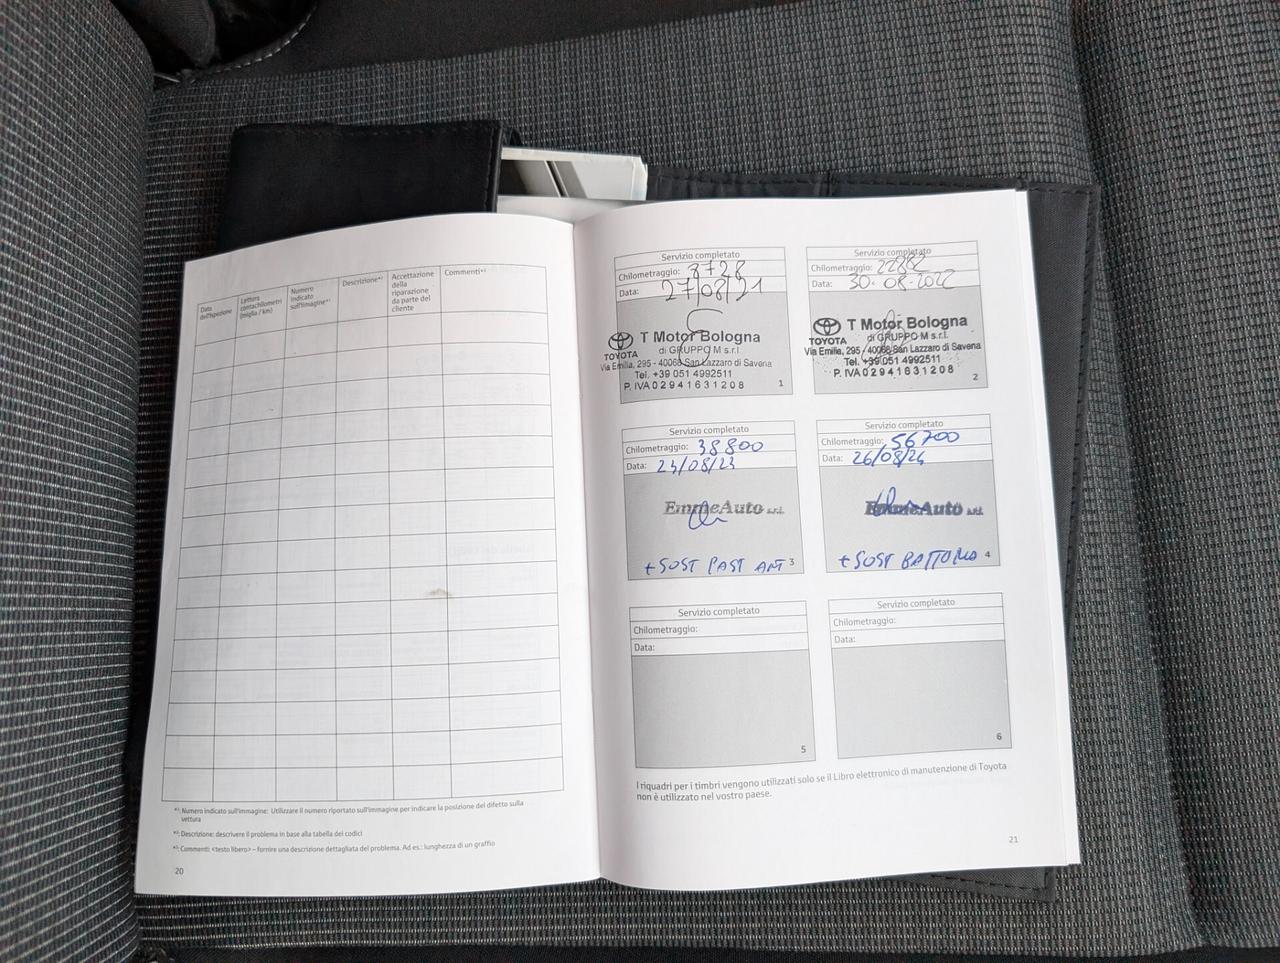 Data dell'ispezione
Lettura contachilometri (miglia / km)
Numero indicato sull'immagine*¹
Descrizione*²
Accettazione della riparazione da parte del cliente
Commenti*³
*¹: Numero indicato sull'immagine: Utilizzare il numero riportato sull'immagine per indicare la posizione del difetto sulla
vettura
*²: Descrizione: descrivere il problema in base alla tabella dei codici
*³: Commenti: <testo libero> – fornire una descrizione dettagliata del problema. Ad es.: lunghezza di un graffio
20
Servizio completato
Chilometraggio: 8728
Data: 27/08/21
TOYOTA
T Motor Bologna
di GRUPPO M s.r.l.
Via Emilia, 295 - 40068 San Lazzaro di Savena
Tel. +39 051 4992511
P. IVA 02941631208
1
Servizio completato
Chilometraggio: 22882
Data: 30-08-2022
TOYOTA
T Motor Bologna
di GRUPPO M s.r.l.
Via Emilia, 295 - 40068 San Lazzaro di Savena
Tel. +39 051 4992511
P. IVA 02941631208
2
Servizio completato
Chilometraggio: 38800
Data: 23/08/23
EmmeAuto s.r.l.
+ SOST PAST ANT
3
Servizio completato
Chilometraggio: 56700
Data: 26/08/24
EmmeAuto s.r.l.
+ SOST BATTERIA
4
Servizio completato
Chilometraggio:
Data:
5
Servizio completato
Chilometraggio:
Data:
6
I riquadri per i timbri vengono utilizzati solo se il Libro elettronico di manutenzione di Toyota
non è utilizzato nel vostro paese.
21